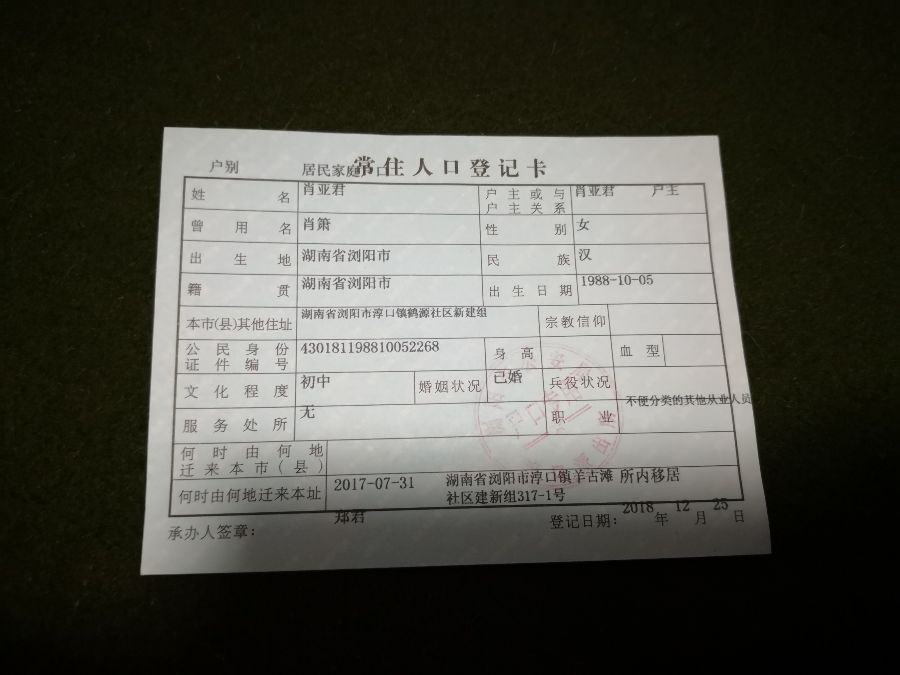 常住人口登记卡
户别 居民家庭户口
姓名 肖亚君 户主或与户主关系 肖亚君 户主
曾用名 肖箫 性别 女
出生地 湖南省浏阳市 民族 汉
籍贯 湖南省浏阳市 出生日期 1988-10-05
本市(县)其他住址 湖南省浏阳市淳口镇鹤源社区新建组 宗教信仰
公民身份证件编号 430181198810052268 身高 血型
文化程度 初中 婚姻状况 已婚 兵役状况
服务处所 无 职业 不便分类的其他从业人员
何时由何地迁来本市(县)
何时由何地迁来本址 2017-07-31 湖南省浏阳市淳口镇羊古滩 所内移居
社区建新组317-1号
承办人签章: 郑君 登记日期: 2018 年 12 月 25 日